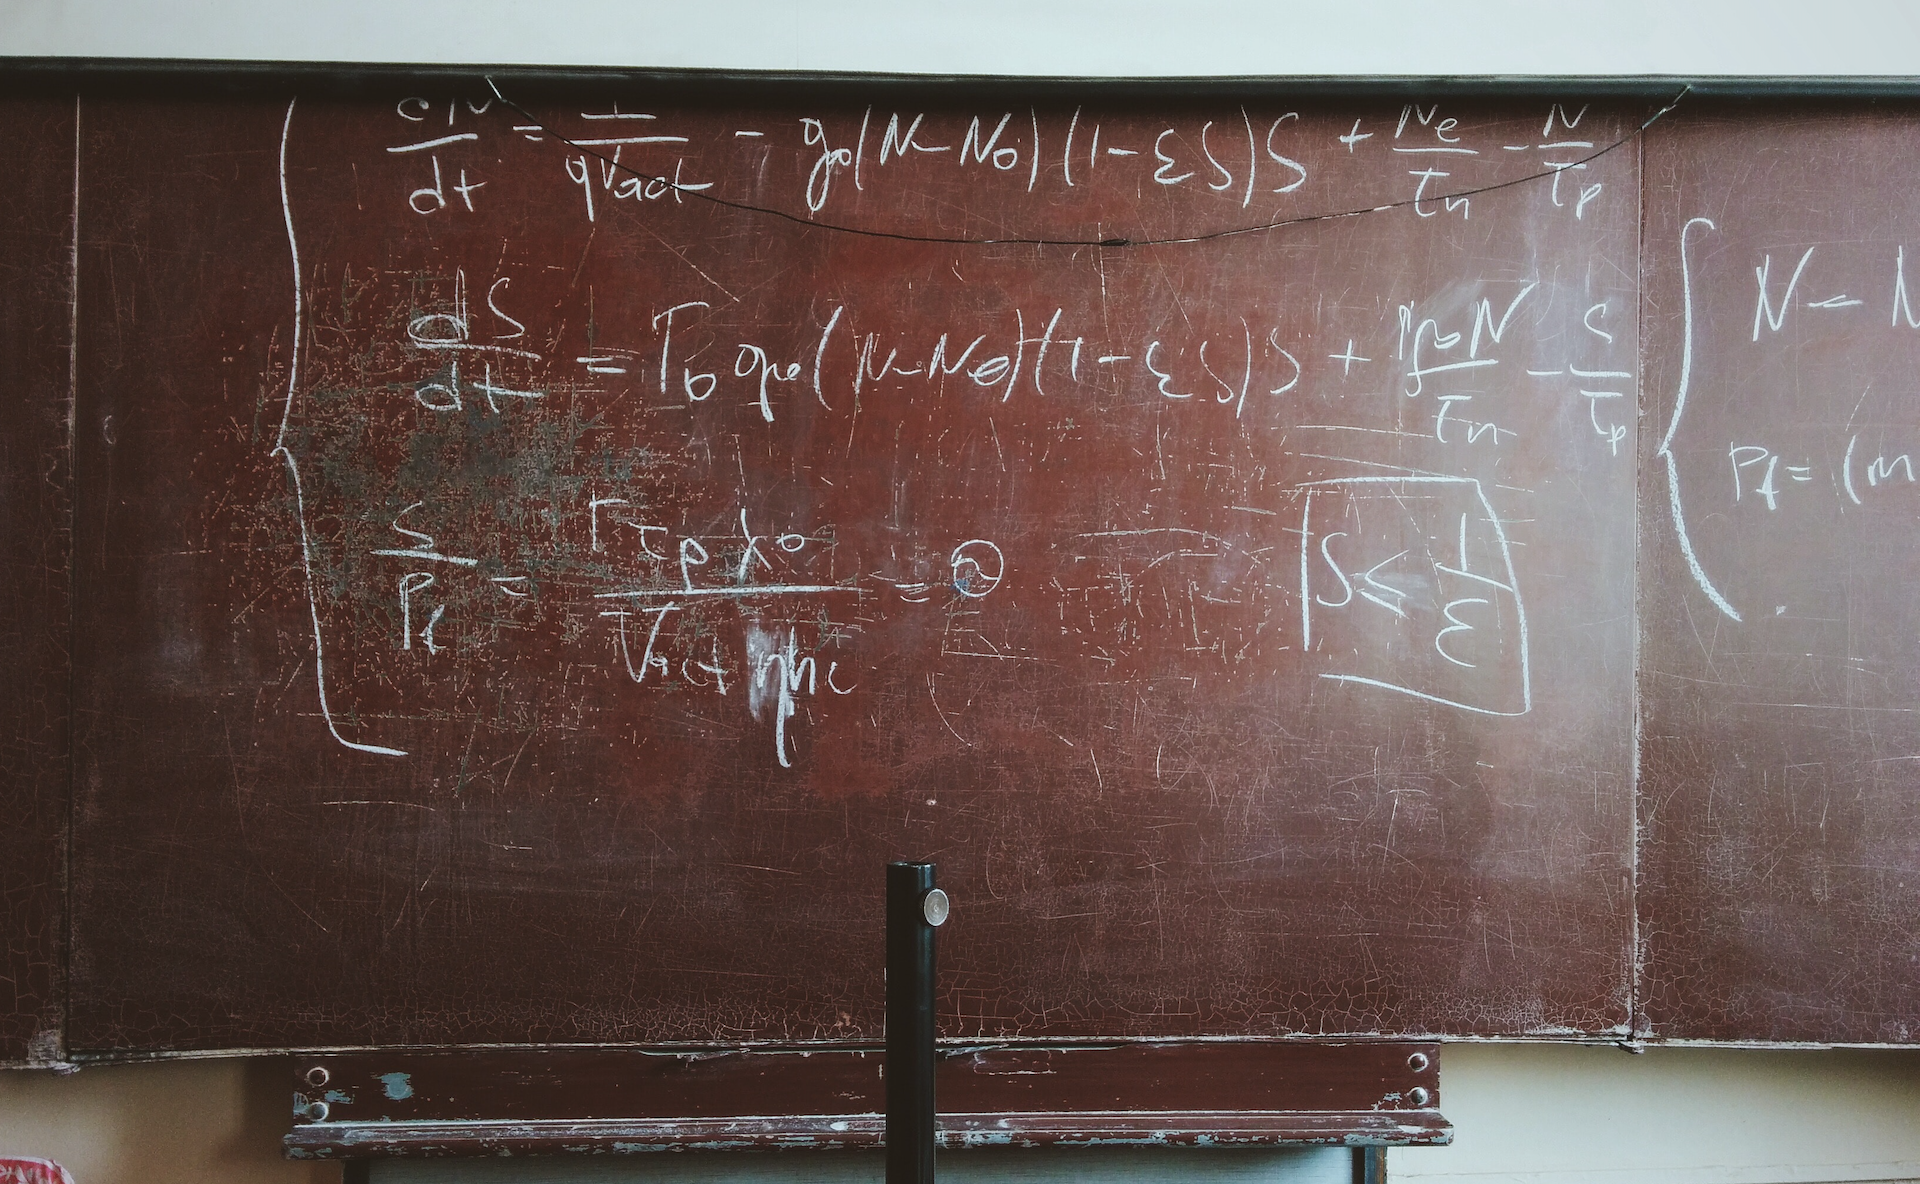 dN/dt = I/qVact - g₀(N-N₀)(1-εS)S + Ne/τn - N/τp
dS/dt = Γ₀ g₀(N-N₀)(1-εS)S + Γβ N/τn - S/τp
S/Pf = Γτpλ₀/Vact ηhc = ②
S ≤ 1/ε
N - N
Pf = (m